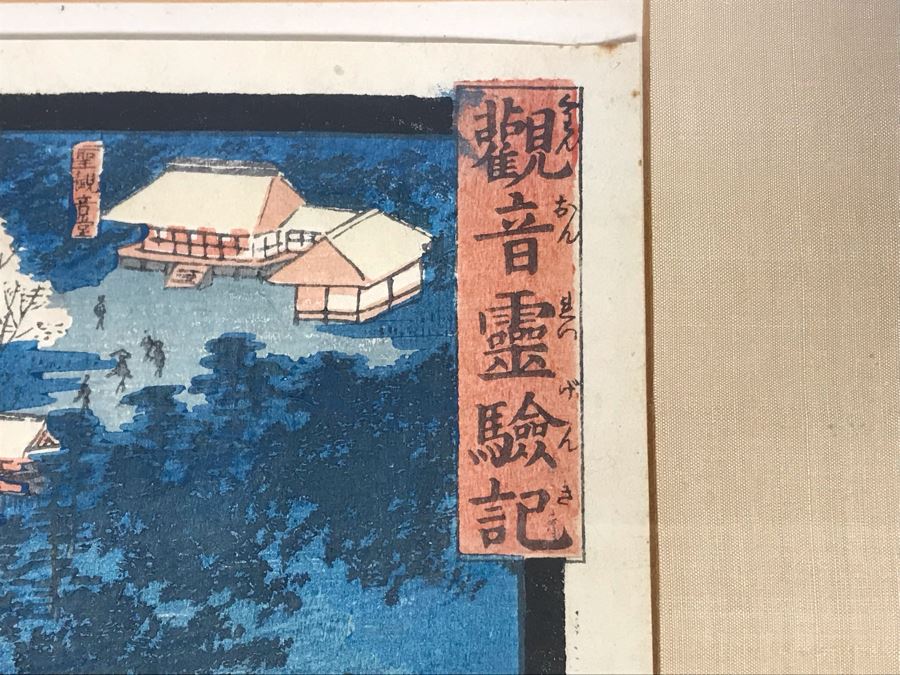 觀音靈驗記
くわんおんれいげんき
聖観音堂